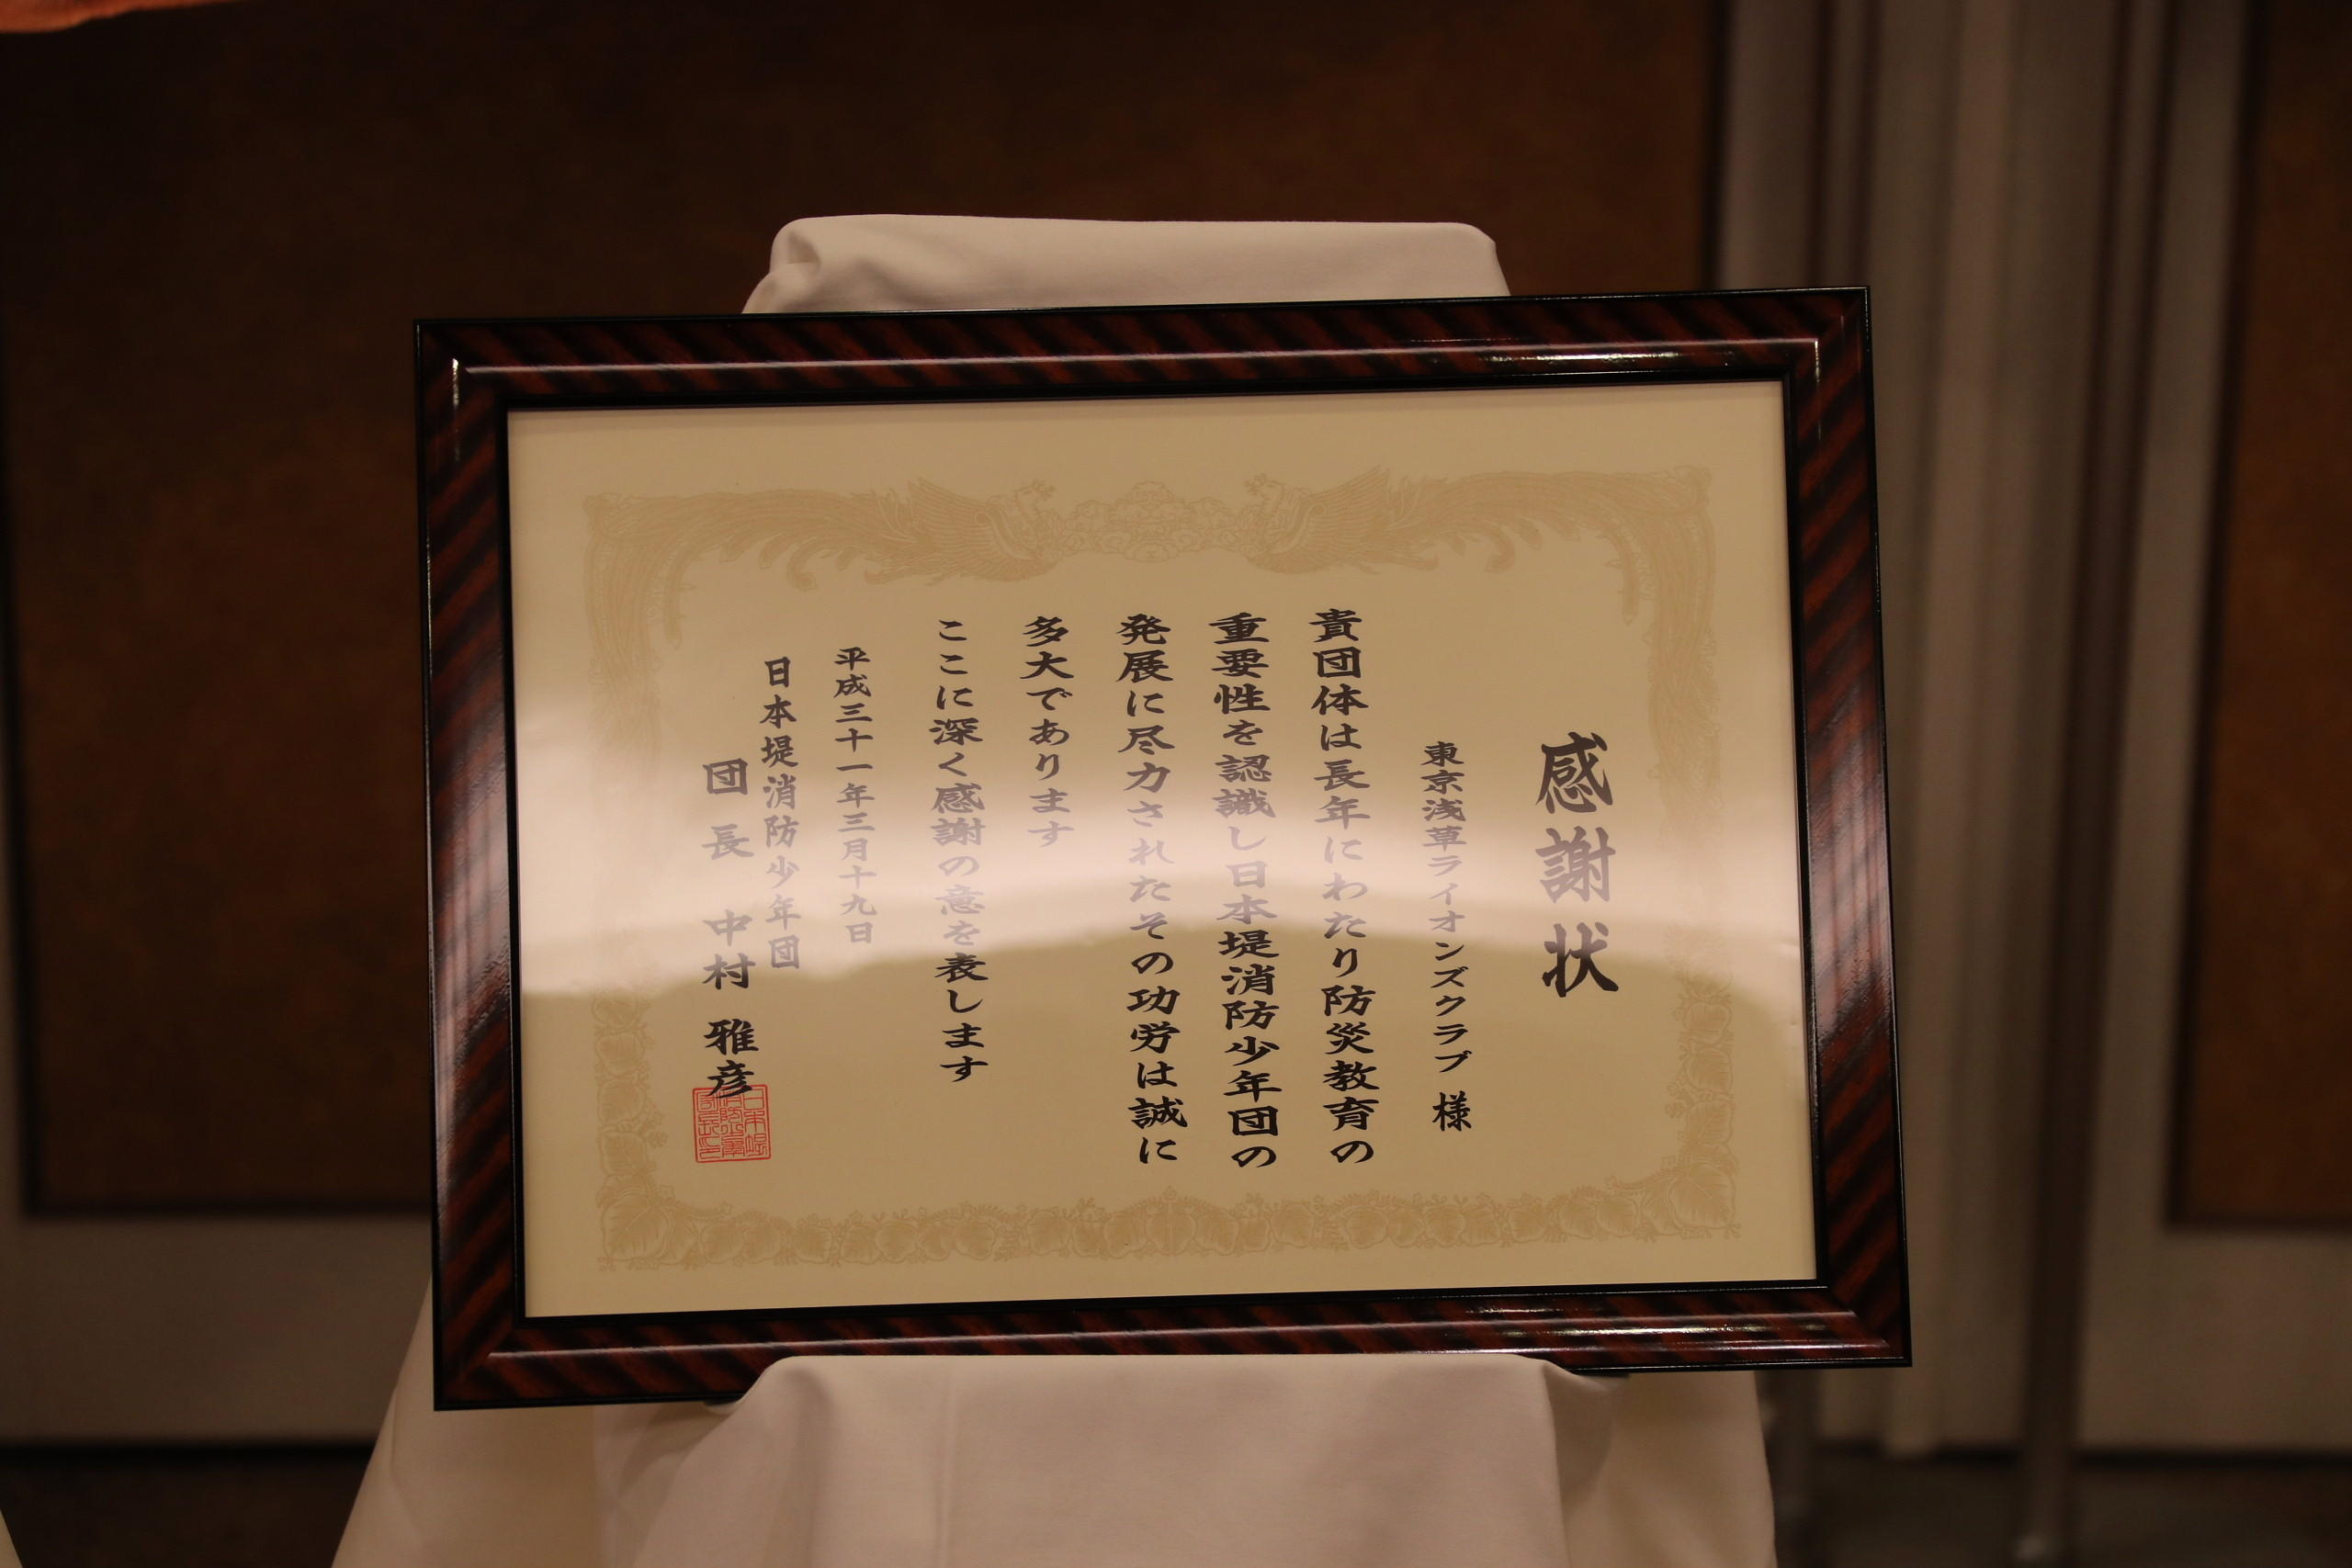 感謝状
東京浅草ライオンズクラブ 様
貴団体は長年にわたり防災教育の
重要性を認識し日本堤消防少年団の
発展に尽力されたその功労は誠に
多大であります
ここに深く感謝の意を表します
平成三十一年三月十九日
日本堤消防少年団
団長 中村 雅彦